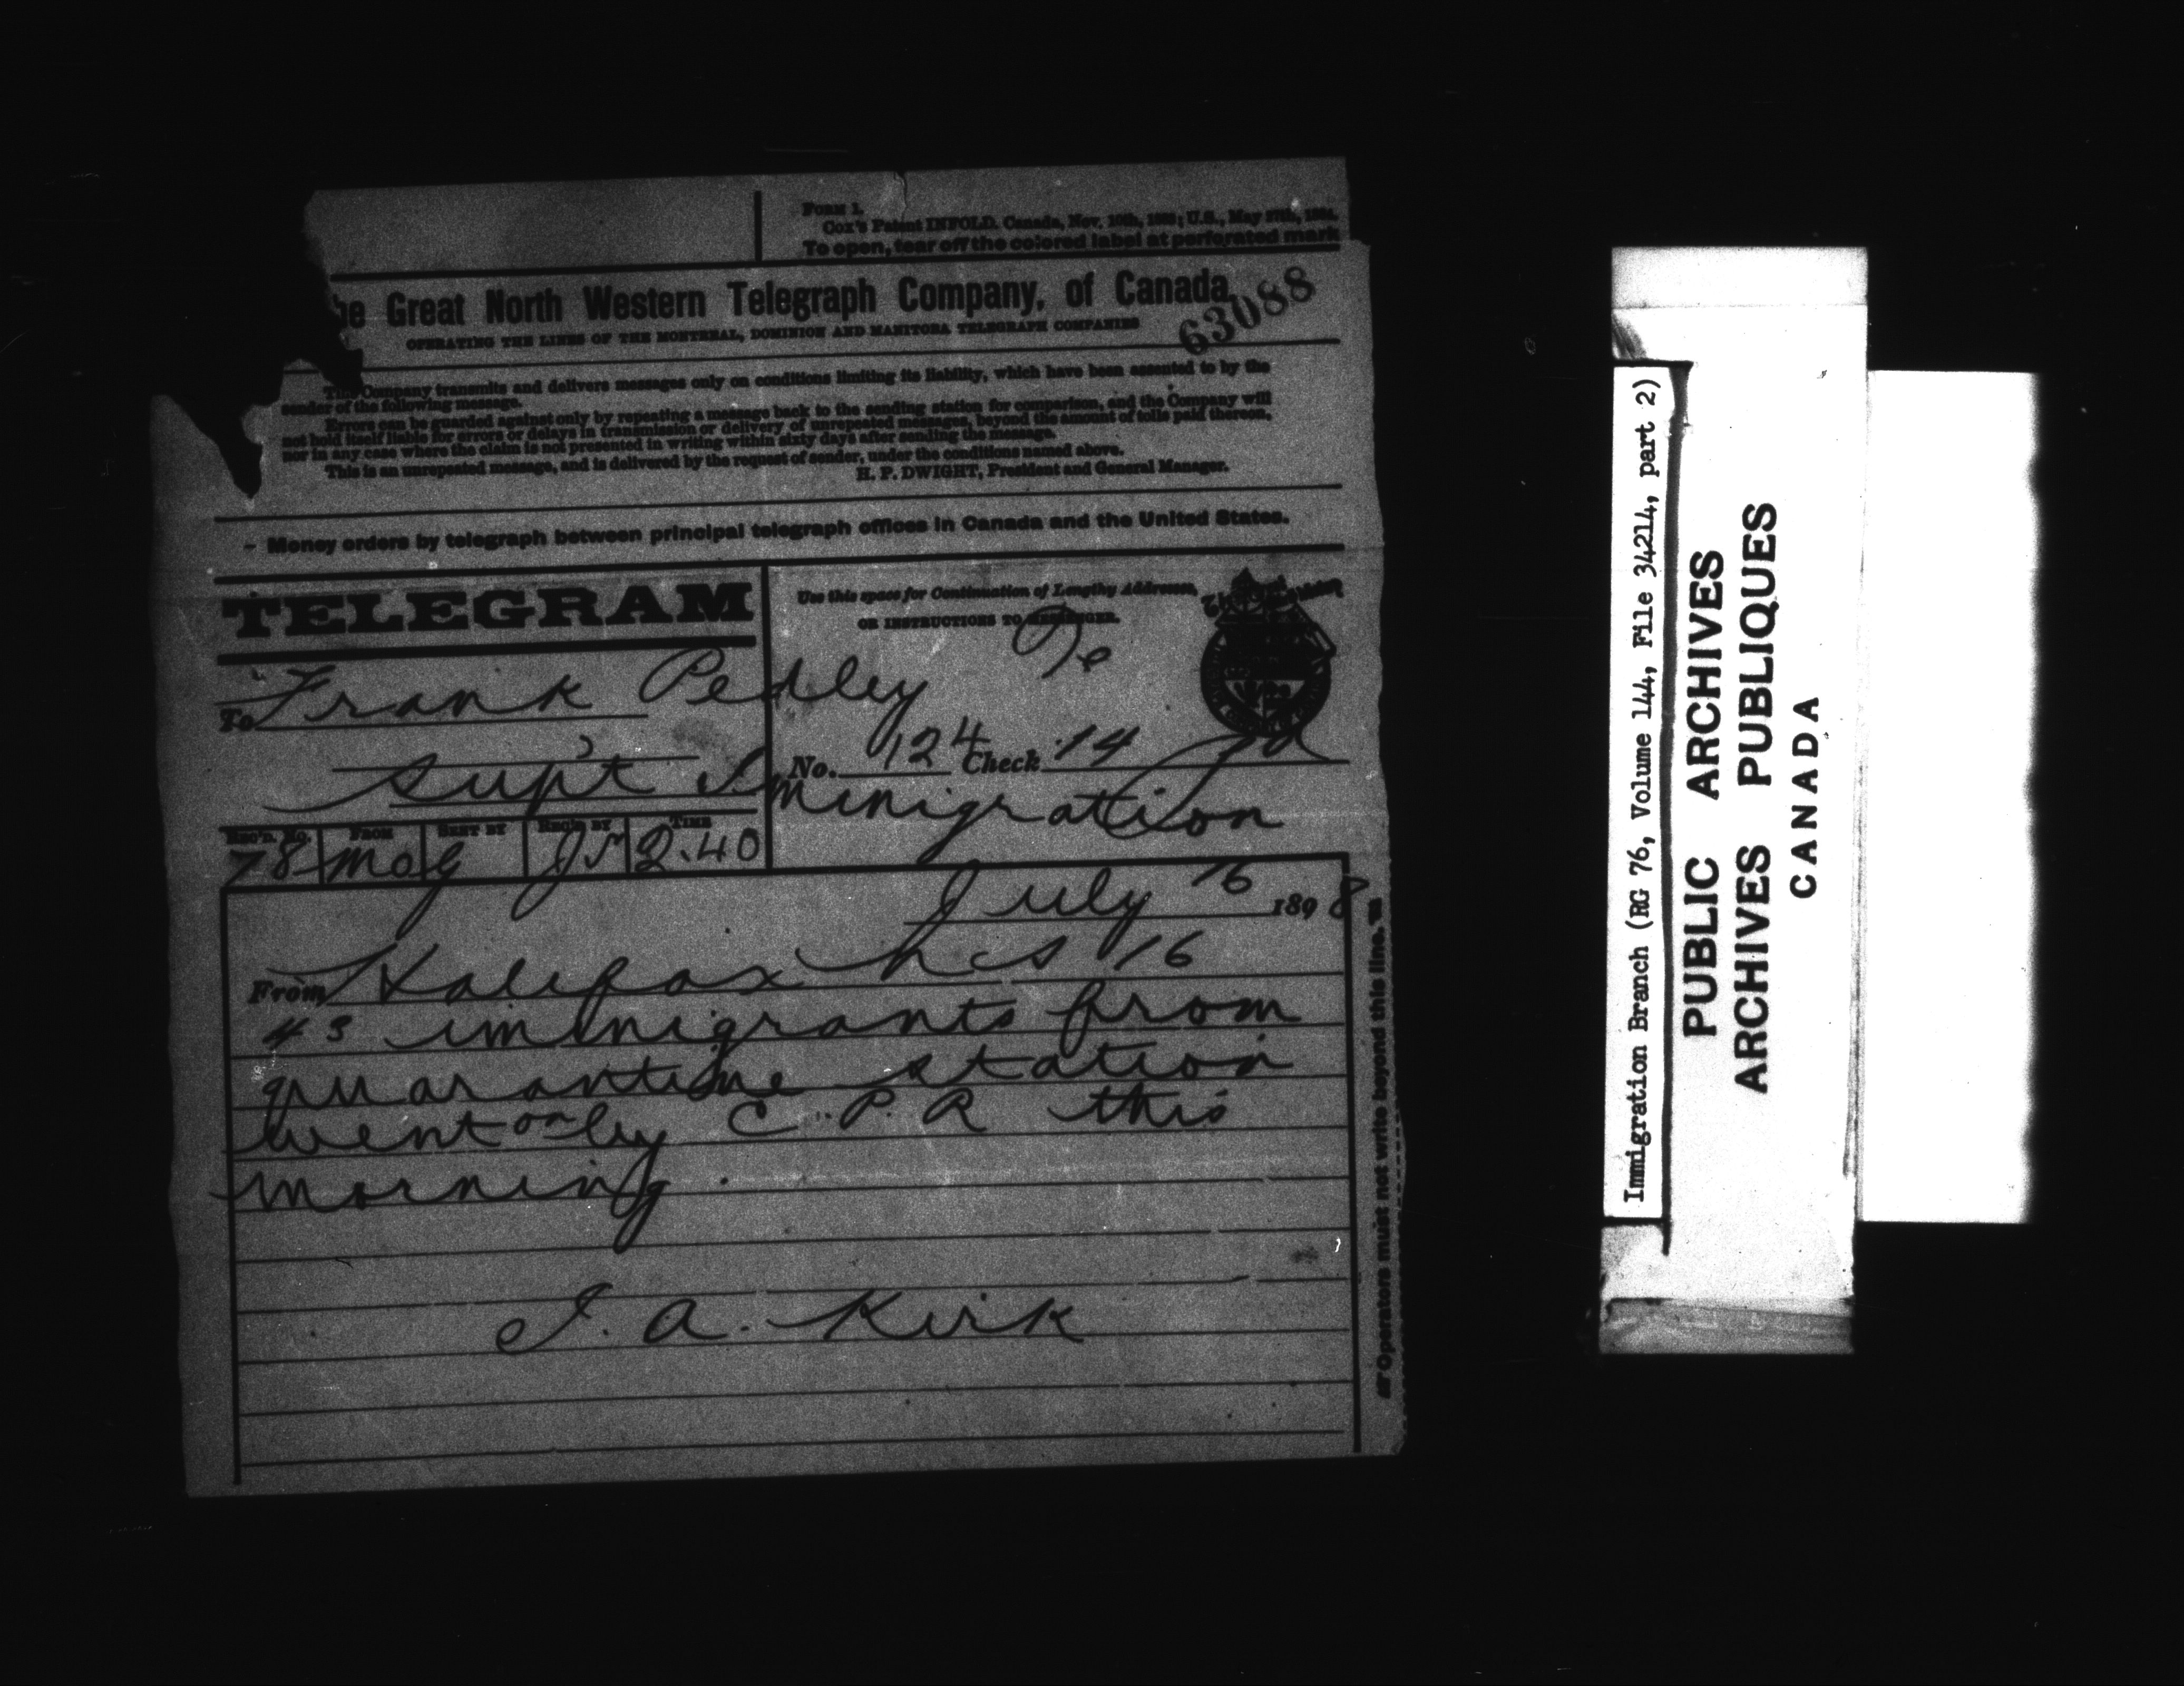 FORM 1.
Cox's Patent INFOLD. Canada, Nov. 10th, U.S., May
To open, tear off the colored label at perforated mark
he Great North Western Telegraph Company, of Canada
63088
OPERATING THE LINES OF THE MONTREAL, DOMINION AND MANITOBA TELEGRAPH COMPANIES
This Company transmits and delivers messages only on conditions limiting its liability, which have been assented to by the
sender of the following message.
Errors can be guarded against only by repeating a message back to the sending station for comparison, and the Company will
not hold itself liable for errors or delays in transmission or delivery of unrepeated messages, beyond the amount of tolls paid thereon,
nor in any case where the claim is not presented in writing within sixty days after sending the message.
This is an unrepeated message, and is delivered by the request of sender, under the conditions named above.
H. P. DWIGHT, President and General Manager.
Money orders by telegraph between principal telegraph offices in Canada and the United States.
TELEGRAM
Use this space for Continuation of Lengthy Addresses,
OR INSTRUCTIONS TO MESSENGER.
To Frank Pedley
No. 124 Check 14
Sup't Immigration
REC'D. No. FROM SENT BY REC'D BY TIME
78 Mo g 2.40
July 16 1898
From Halifax N S 16
43 immigrants from
quarantine station
went on by C. P. R this
morning.
I. A. Kirk
Operators must not write beyond this line.
Immigration Branch (RG 76, Volume 144, File 34214, part 2)
PUBLIC ARCHIVES
ARCHIVES PUBLIQUES
CANADA